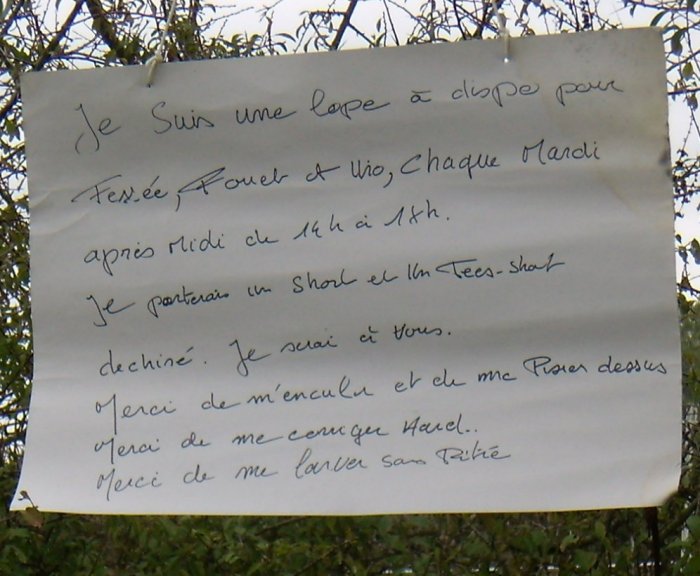 Je Suis une lope à dispo pour
Fessée, Fouet et Uro, Chaque Mardi
après Midi de 14h à 18h.
Je porterais un Short et Un Tees-Short
dechiré. Je serai à Vous.
Merci de m'enculer et de me Pisser dessus
Merci de me corriger Hard..
Merci de me larver sans Pitié